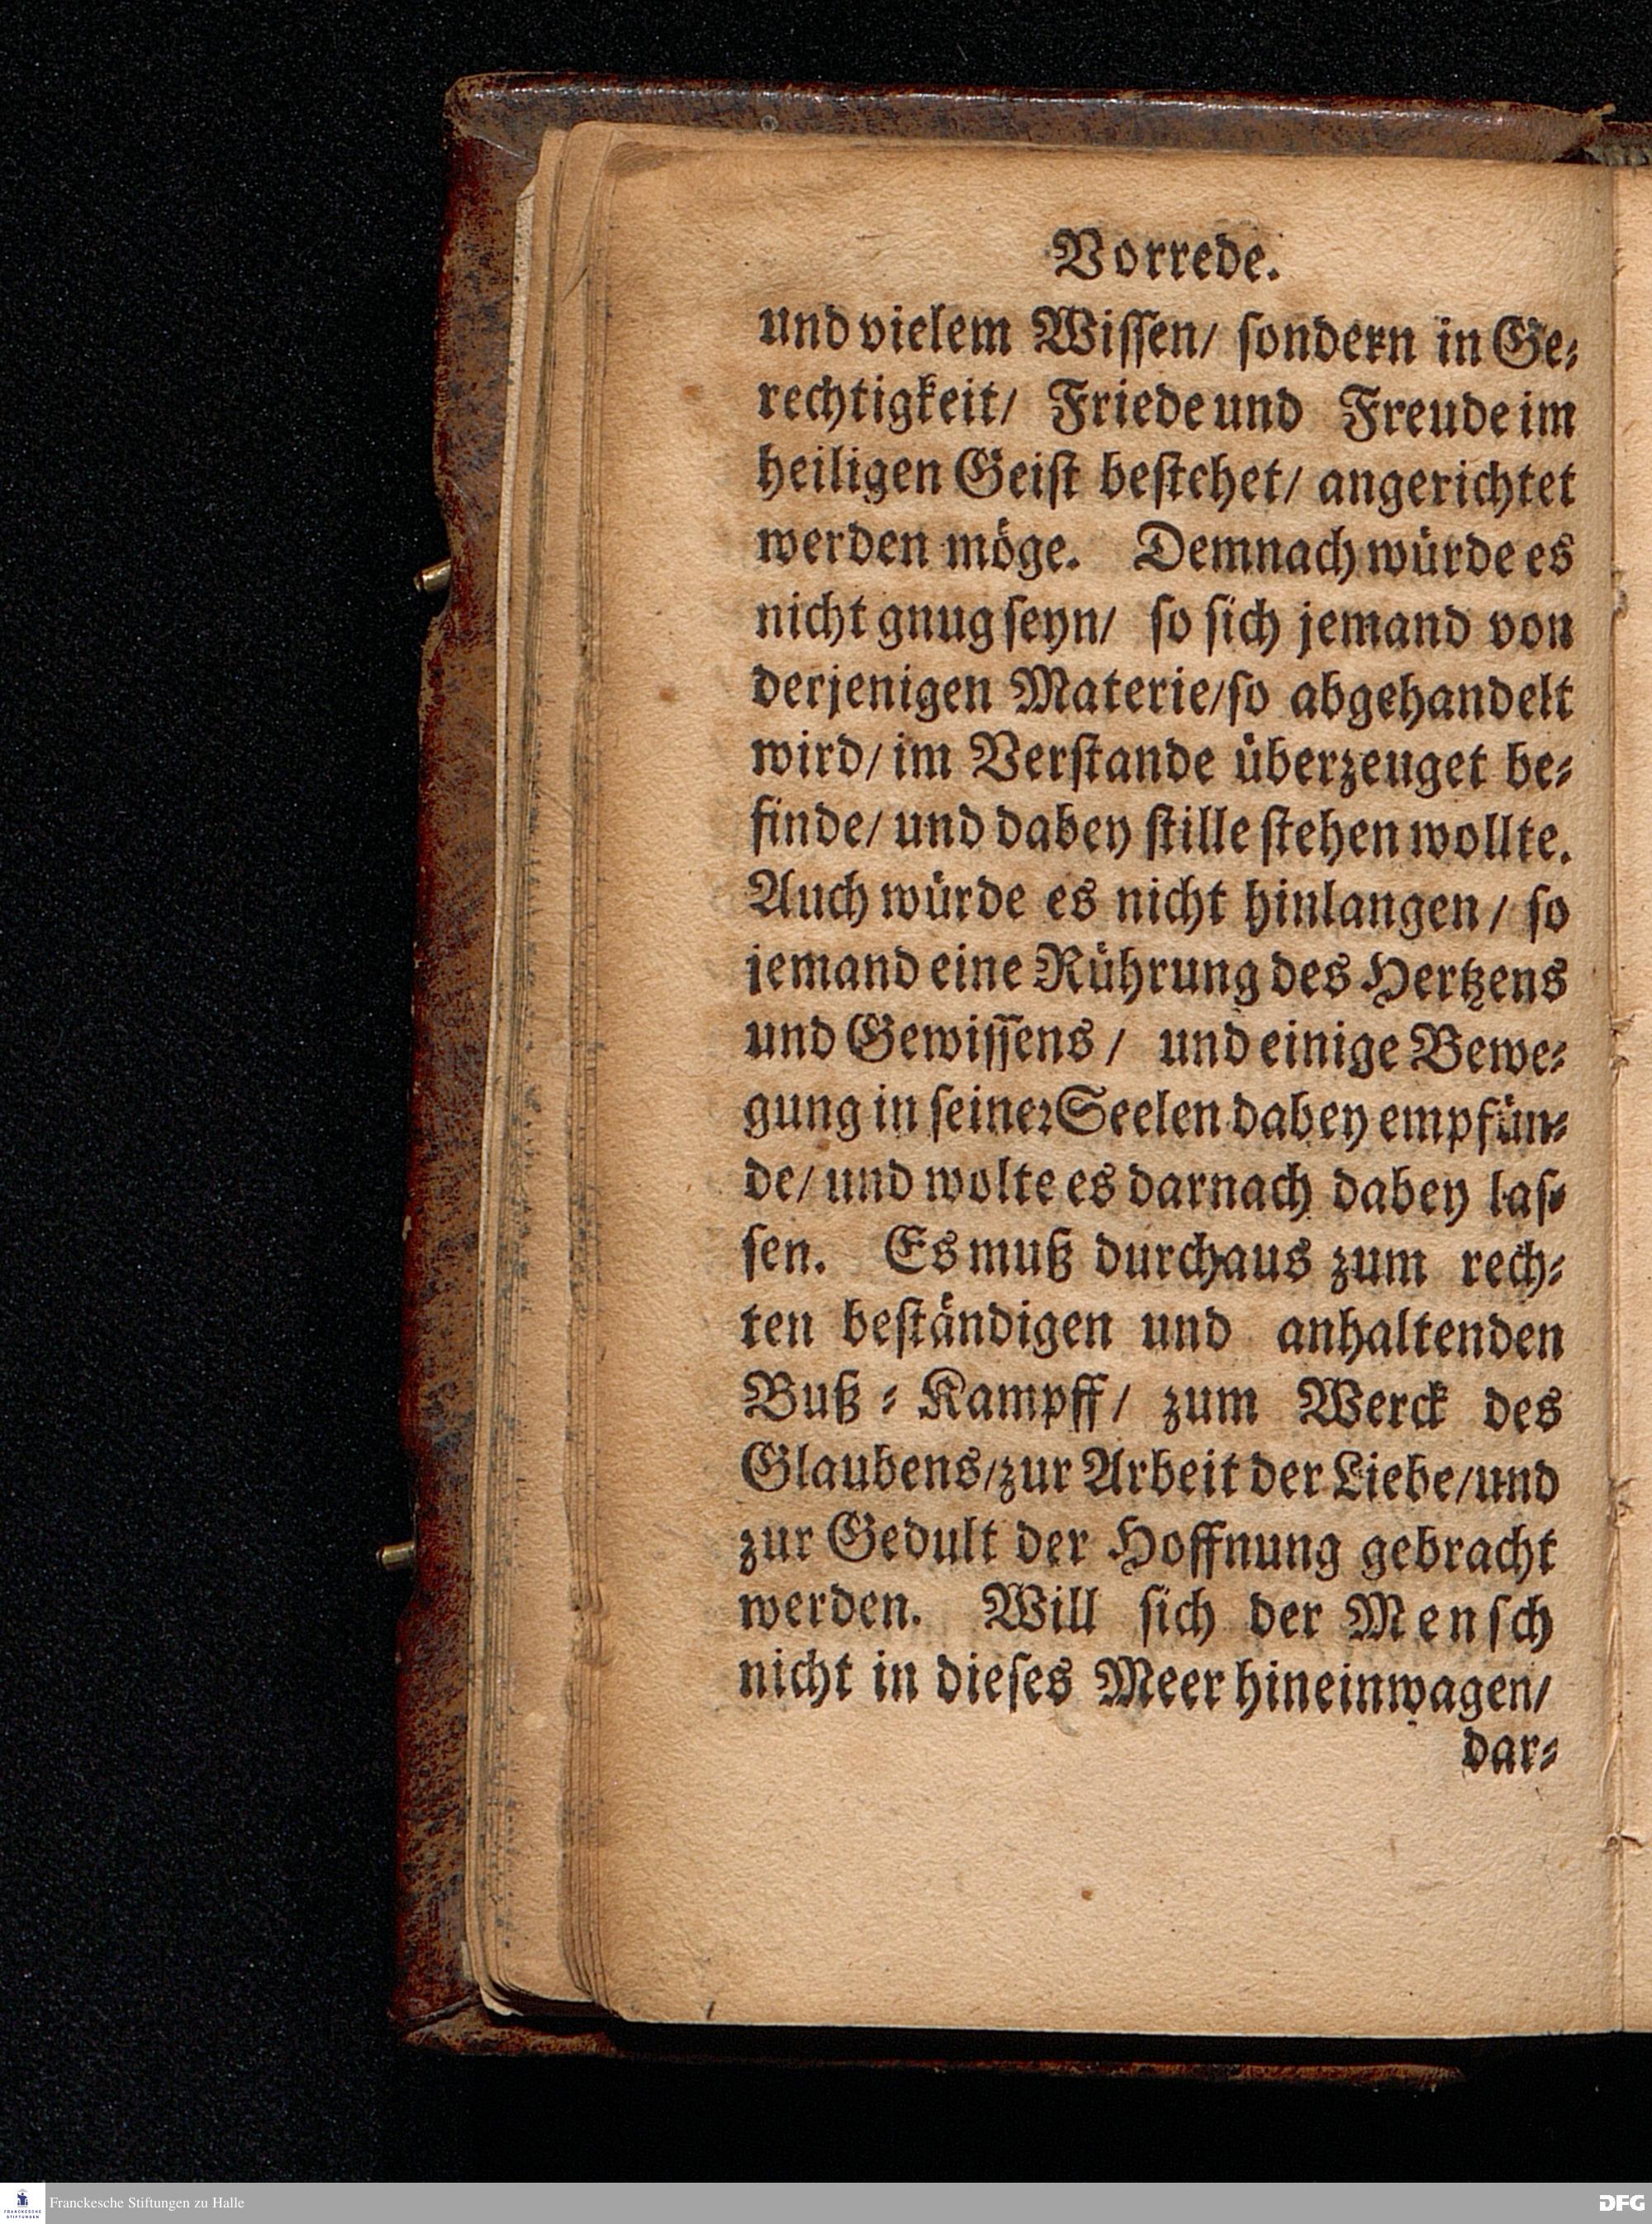 Vorrede.
und vielem Wiſſen/ ſondern in Ge⸗
rechtigkeit/ Friede und Freude im
heiligen Geiſt beſtehet/ angerichtet
werden möge. Demnach würde es
nicht gnug ſeyn/ ſo ſich jemand von
derjenigen Materie/ſo abgehandelt
wird/ im Verſtande überzeuget be⸗
finde/ und dabey ſtille ſtehen wollte.
Auch würde es nicht hinlangen/ ſo
jemand eine Rührung des Hertzens
und Gewiſſens/ und einige Bewe⸗
gung in ſeiner Seelen dabey empfün⸗
de/ und wolte es darnach dabey laſ⸗
ſen. Es muß durchaus zum rech⸗
ten beſtändigen und anhaltenden
Buß⸗Kampff/ zum Werck des
Glaubens/zur Arbeit der Liebe/und
zur Gedult der Hoffnung gebracht
werden. Will ſich der Menſch
nicht in dieſes Meer hineinwagen/
dar⸗
Franckesche Stiftungen zu Halle
FRANCKESCHE
STIFTUNGEN
DFG